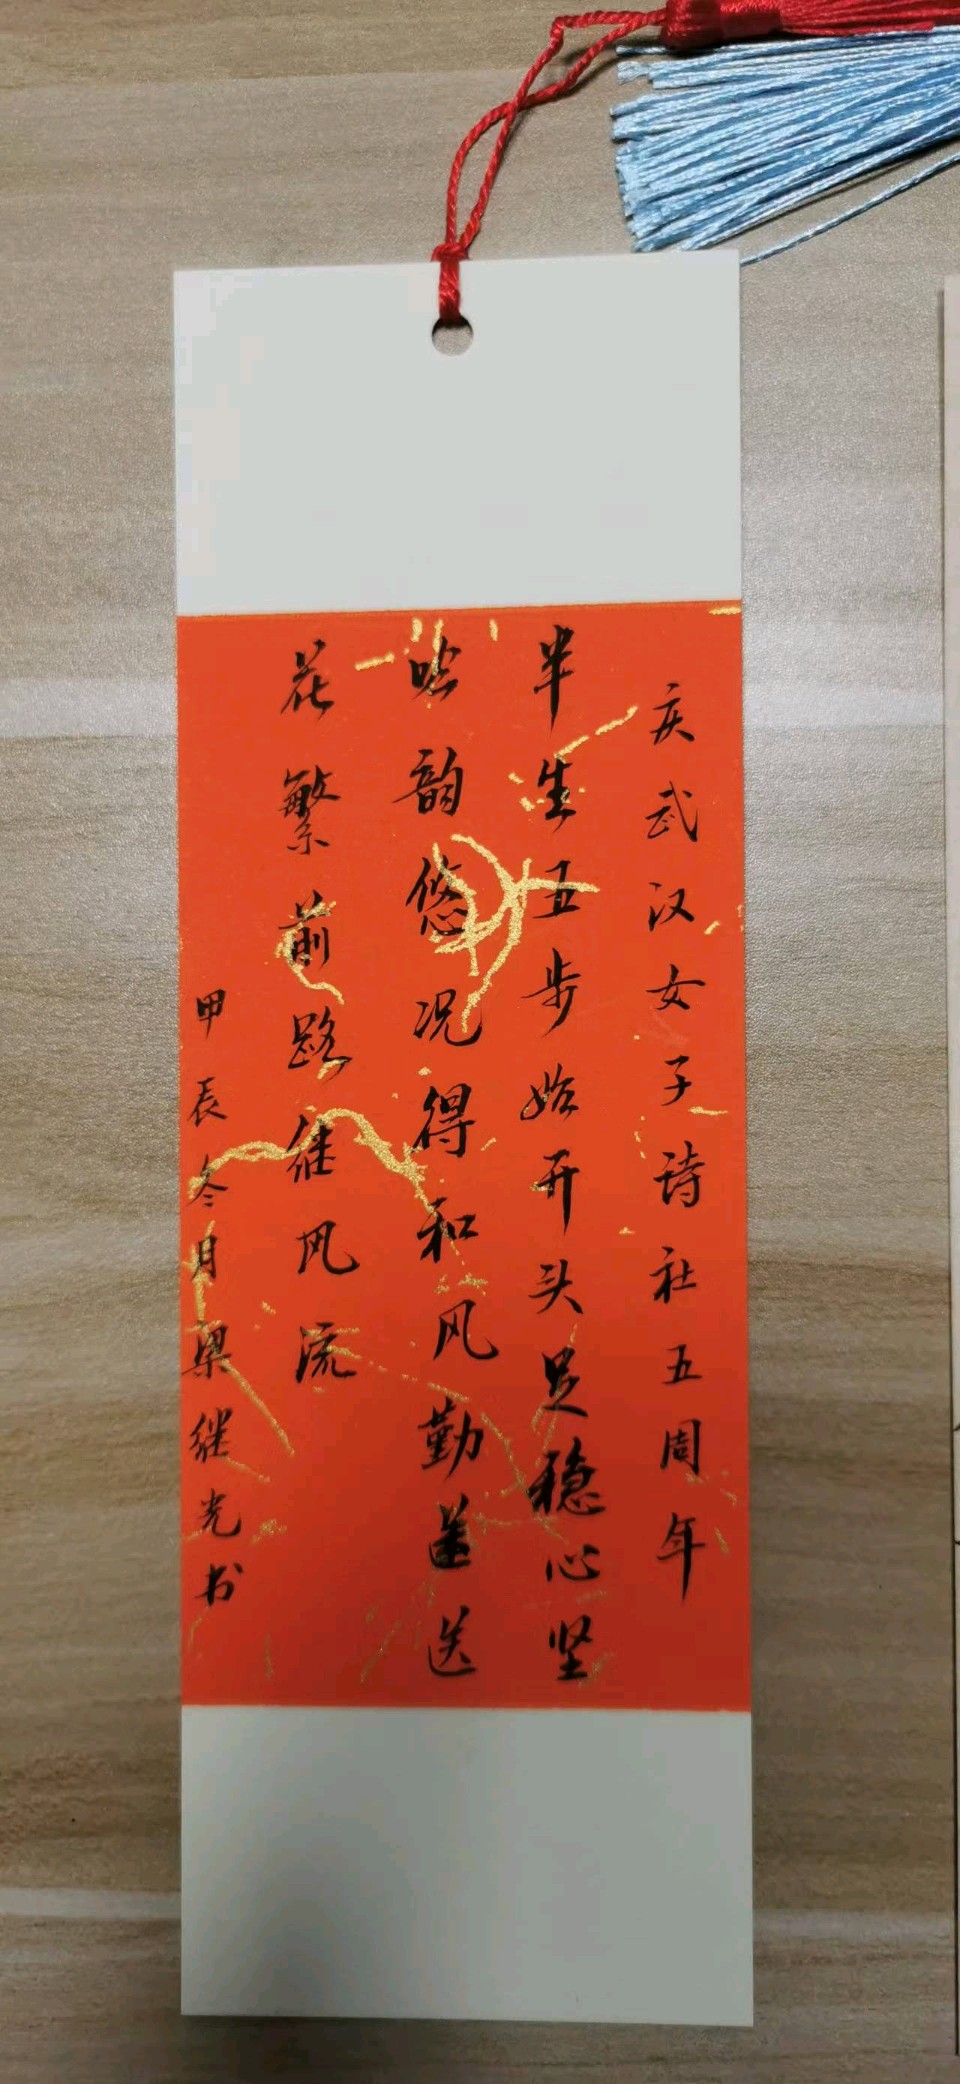 庆武汉女子诗社五周年
半生五步始开头足稳心坚
吟韵悠况得和风勤递送
花繁前路任风流
甲辰冬月梁继光书